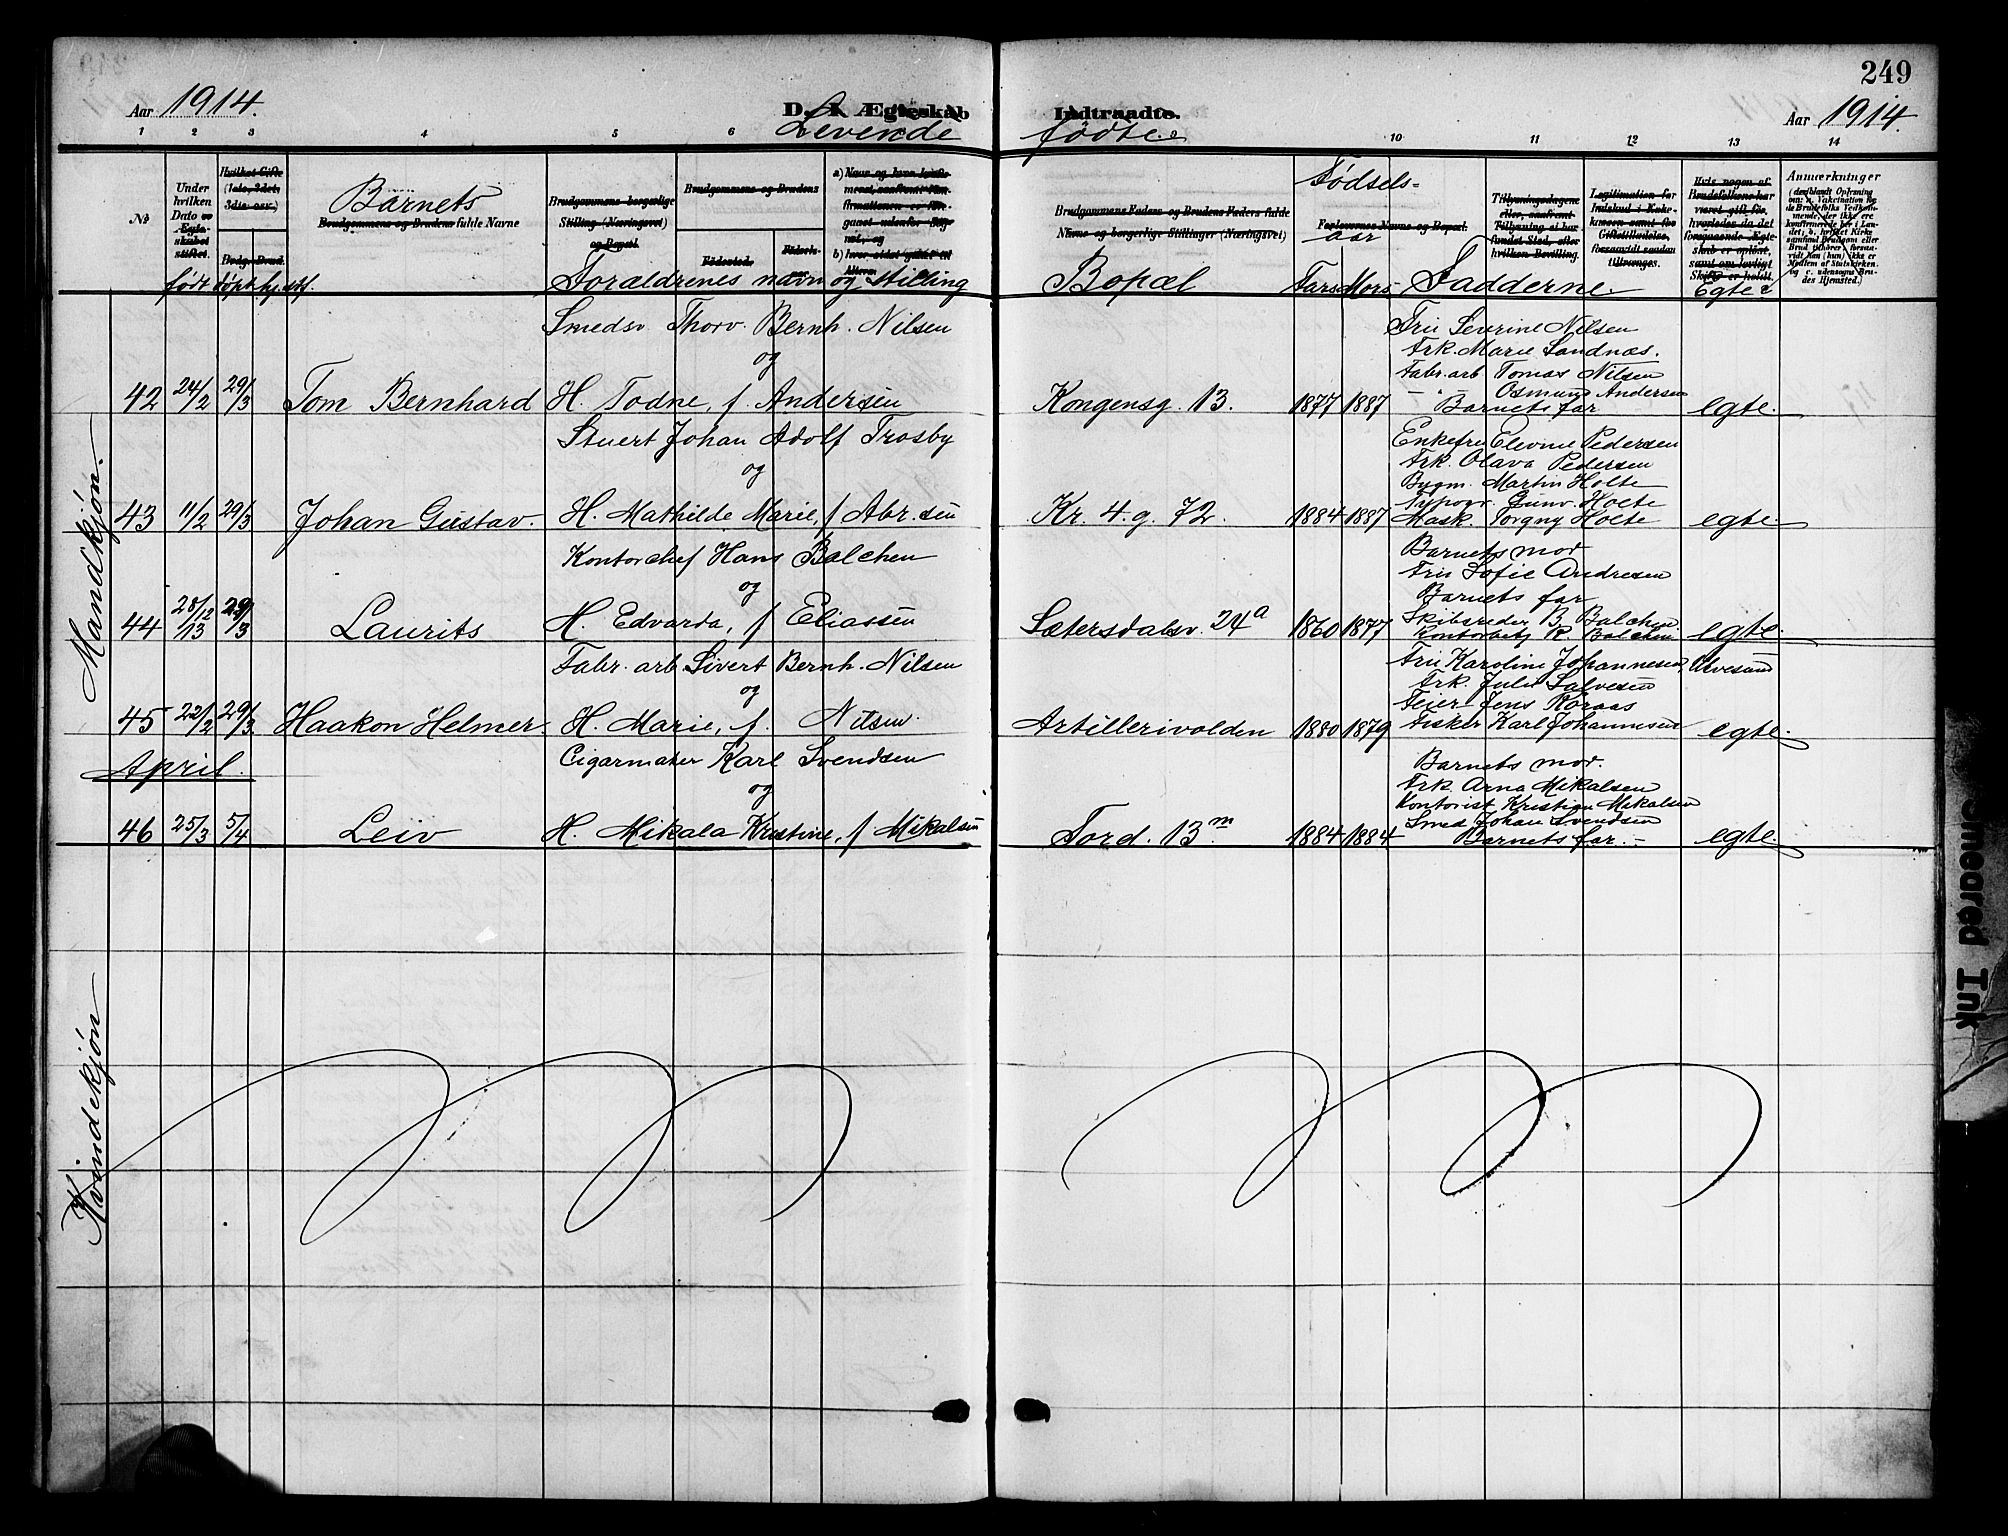 249
Aar 1914.
D. I. Ægteskab Indtraadte.
Levende fødte.
Aar 1914.
1 2 3 4 5 6 10 11 12 13 14
№
Under hvilken Dato Ægteskabet stiftet.
født døpt hj.st.f.
Barnets
Brudgommens og Brudens fulde Navne
Brudgommens borgerlige Stilling (Næringsvei) og Bopæl
Brudgommens og Brudens
Fødested.
Forældrenes navn og stilling
Brudgommens Faders og Brudens Faders fulde Navne og borgerlige Stillinger (Næringsvei)
Bopæl
Fødsels-
Forlovernes Navne og Bopæl.
aar
Fars Mors
Fadderne.
Egte
Anmærkninger
Mandkjøn.
Smedsv Thorv. Bernh. Nilsen
og
42 24/2 29/3 Tom Bernhard H. Todne, f. Andersen Kongensg. 13. 1877 1887 egte.
Fru Severine Nilsen
Frk. Marie Sandnæs.
Fabr. arb Tomas Nilsen
— Osmund Andersen
Barnets far
Stuert Johan Adolf Trosby
og
43 11/2 29/3 Johan Gustav. H. Mathilde Marie, f Abr.sen Kr. 4. g. 72. 1884 1887 egte.
Enkefru Elevine Pedersen
Frk. Olava Pedersen
Bygm. Martin Holte
Typogr. Gunv. Holte
Mask. Torgny Holte
Kontorchef Hans Balchen
og
44 28/12 13 29/3 Laurits H. Edvarda, f Eliassen Sætersdalsv. 24a 1860 1877 egte.
Barnets mor
Fru Sofie Andresen
Barnets far
Skibsreder B. Balchen
Kontorbetj R. Balchen
Fabr. arb Sivert Bernh. Nilsen
og
45 22/2 29/3. Haakon Helmer. H. Marie, f. Nilsen. Artillerivolden 1880 1879 egte.
Fru Karoline Johannesen, Ulvesund
Frk. Julie Salvesen
Feier Jens Roraas
Fisker Karl Johannesen
April.
Cigarmaker Karl Svendsen
og
46 25/3 5/4 Leiv H. Mikala Kristine, f Mikalsen Tord. 13m 1884 1884 egte.
Barnets mor.
Frk. Arna Mikalsen
Kontorist Kristian Mikalsen
Smed Johan Svendsen
Barnets far.
Kvindekjøn
Smeared Ink